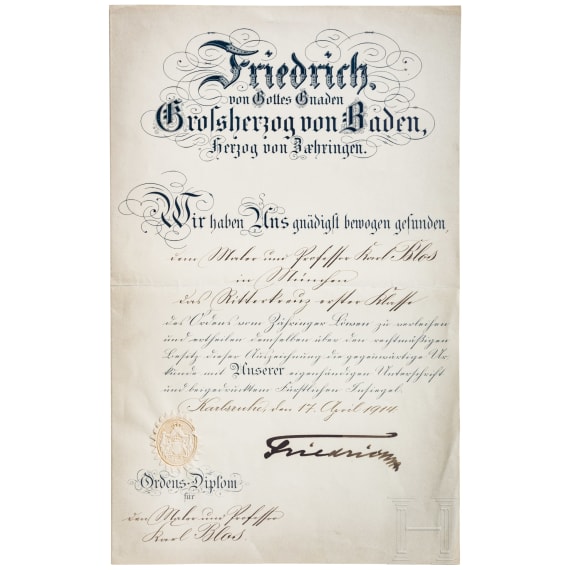 Friedrich,
von Gottes Gnaden
Grossherzog von Baden,
Herzog von Zæhringen.
Wir haben Uns gnädigst bewogen gefunden,
dem Maler und Professor Karl Blos
in München
das Ritterkreuz erster Klasse
des Ordens vom Zähringer Löwen zu verleihen
und ertheilen demselben über den rechtmäßigen
Besitz dieser Auszeichnung die gegenwärtige Ur-
kunde mit Unserer eigenhändigen Unterschrift
und beigedrucktem Fürstlichen Insiegel.
Karlsruhe, den 17. April 1914.
Friedrich
Ordens-Diplom
für
den Maler und Professor
Karl Blos
H